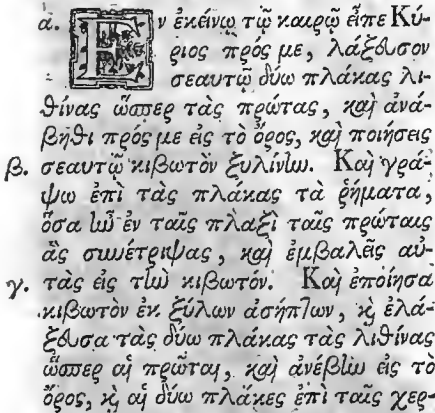 ά. Ἐν ἐκείνῳ τῷ καιρῷ εἶπε Κύ-
ριος πρός με, λάξευσον
σεαυτῷ δύω πλάκας λι-
θίνας ὥσπερ τὰς πρώτας, καὶ ἀνά-
βηθι πρός με εἰς τὸ ὄρος, καὶ ποιήσεις
β. σεαυτῷ κιβωτὸν ξυλίνην. Καὶ γρά-
ψω ἐπὶ τὰς πλάκας τὰ ῥήματα,
ὅσα ἦν ἐν ταῖς πλαξὶ ταῖς πρώταις
ἃς συνέτριψας, καὶ ἐμβαλεῖς αὐ-
γ. τὰς εἰς τὴν κιβωτόν. Καὶ ἐποίησα
κιβωτὸν ἐκ ξύλων ἀσήπτων, καὶ ἐλά-
ξευσα τὰς δύω πλάκας τὰς λιθίνας
ὥσπερ αἱ πρῶται, καὶ ἀνέβην εἰς τὸ
ὄρος, καὶ αἱ δύω πλάκες ἐπὶ ταῖς χερ-